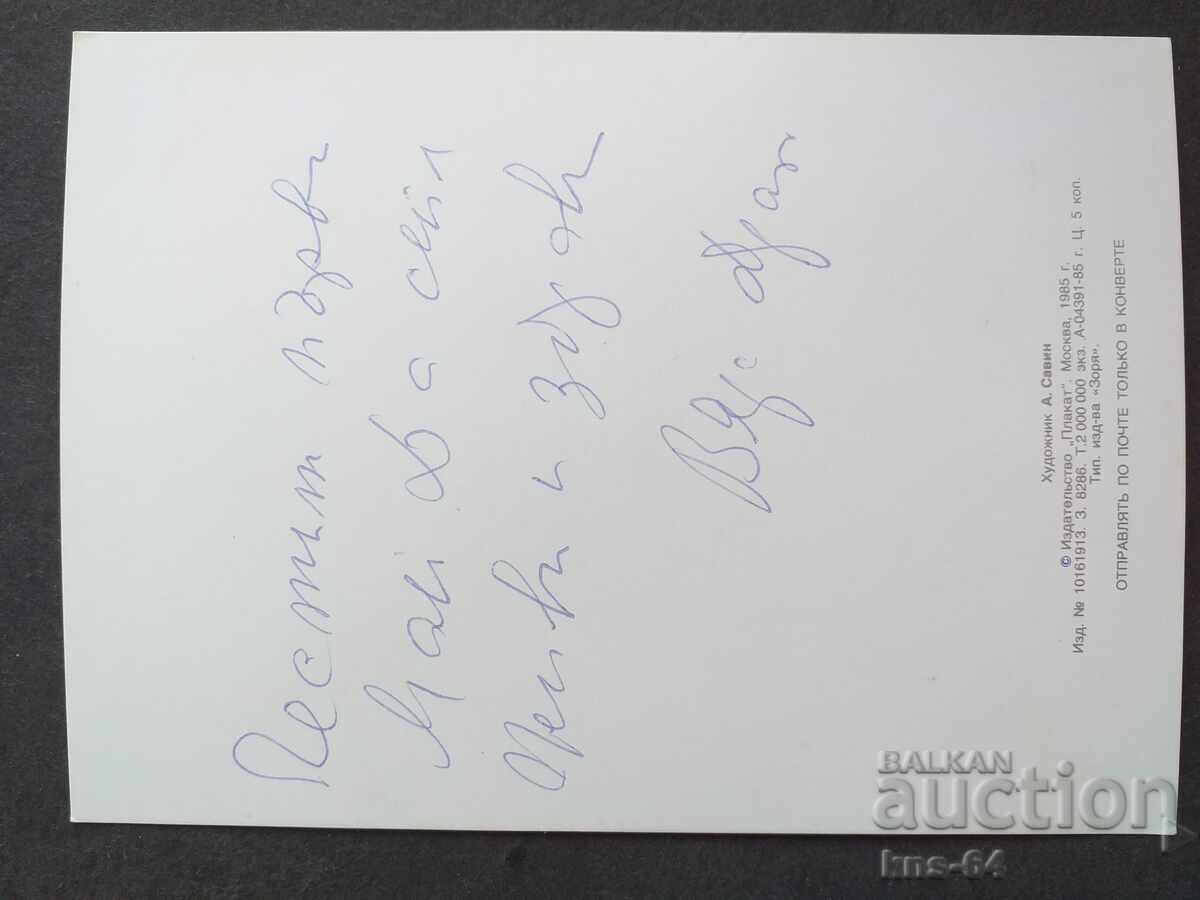 Честит първи
Май Да сте
живи и здрави
Художник А. Савин
© Издательство „Плакат". Москва, 1985 г.
Изд. № 10161913. З. 8286. Т.2 000 000 экз. А-04391-85 г. Ц. 5 коп.
Тип. изд-ва «Зоря».
ОТПРАВЛЯТЬ ПО ПОЧТЕ ТОЛЬКО В КОНВЕРТЕ
BALKAN
auction
kns-64